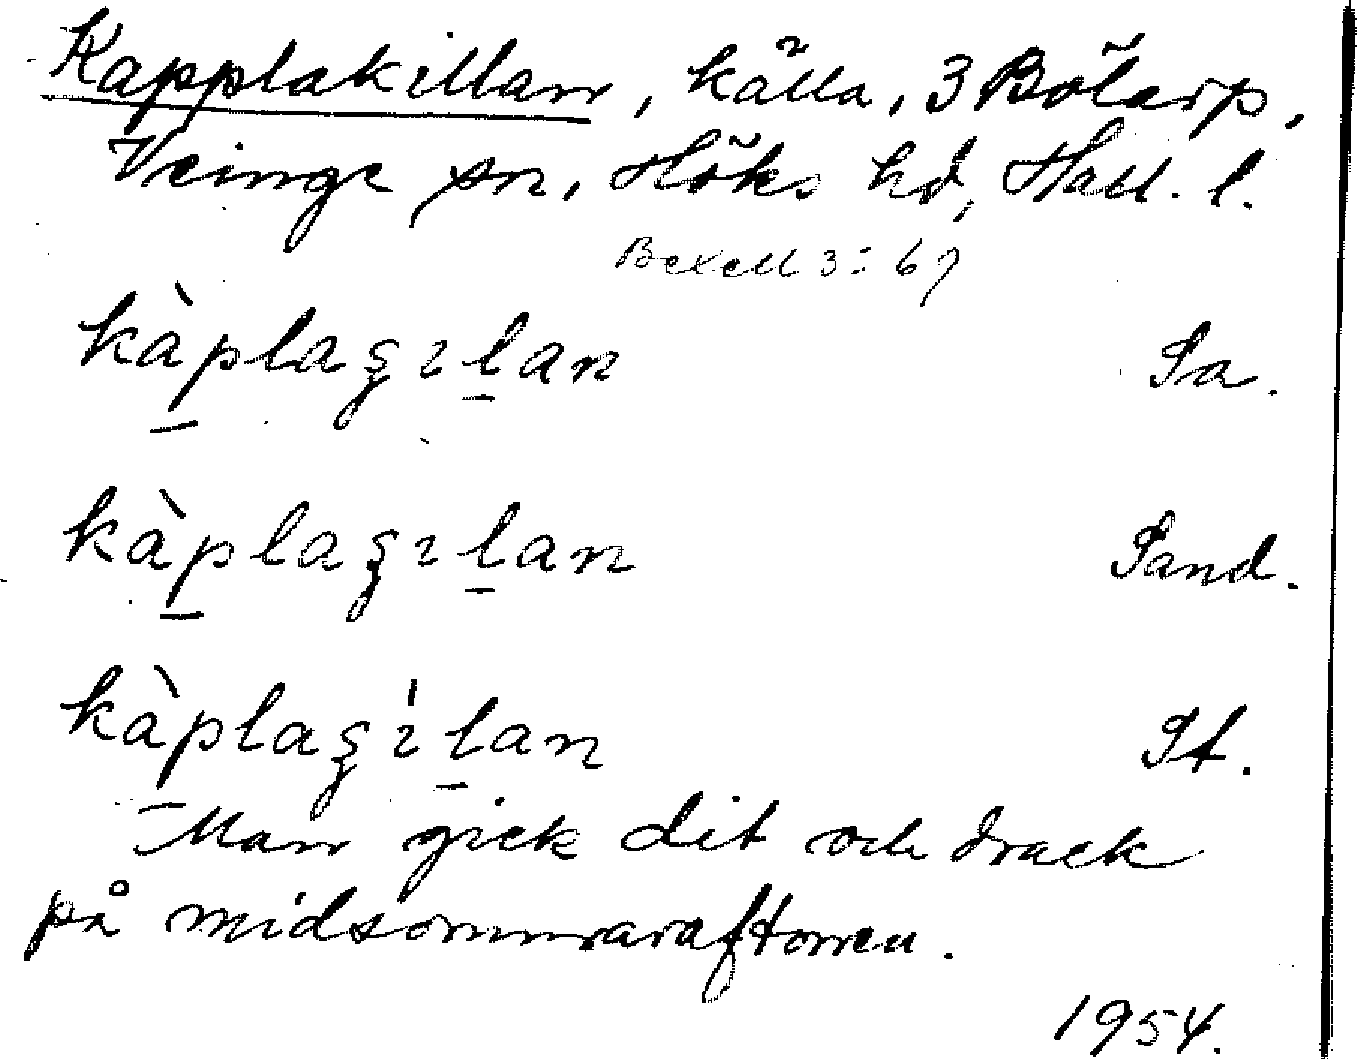 Kapplakillan, källa, 3 Bölarp,
Veinge sn, Höks hd, Hall. l.
Bexell 3:67
kàplagılan Sa.
kàplagılan Sand.
kàplagı̍lan St.
Man gick dit och drack
på midsommaraftonen.
1954.